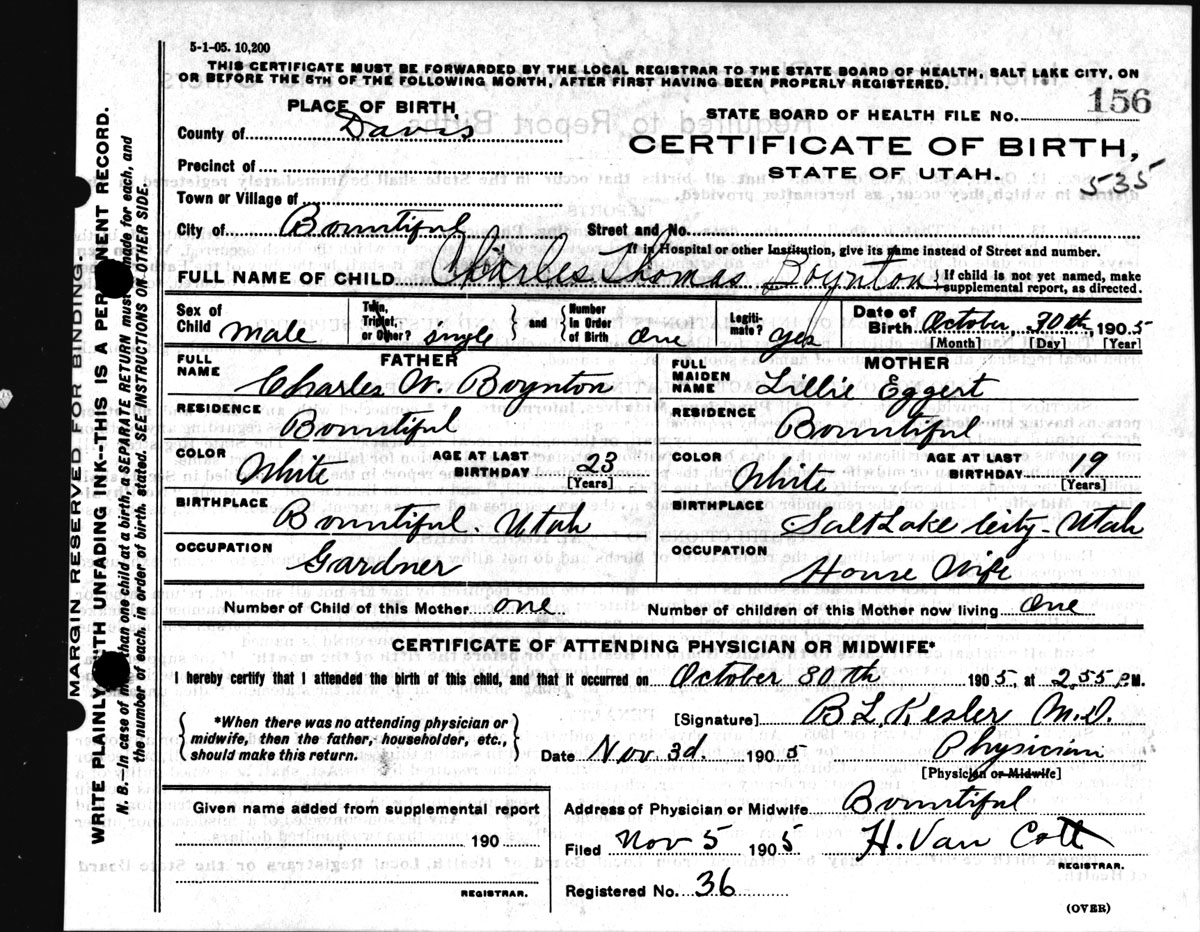 5-1-05. 10,200
THIS CERTIFICATE MUST BE FORWARDED BY THE LOCAL REGISTRAR TO THE STATE BOARD OF HEALTH, SALT LAKE CITY, ON
OR BEFORE THE 5TH OF THE FOLLOWING MONTH, AFTER FIRST HAVING BEEN PROPERLY REGISTERED.
PLACE OF BIRTH
STATE BOARD OF HEALTH FILE No. 156
County of Davis
CERTIFICATE OF BIRTH,
Precinct of
STATE OF UTAH.
535
Town or Village of
City of Bountiful Street and No.
If in Hospital or other Institution, give its name instead of Street and number.
FULL NAME OF CHILD Charles Thomas Boynton } If child is not yet named, make supplemental report, as directed.
Sex of Child male Twin, Triplet, or Other? single } and { Number in Order of Birth one Legitimate? yes Date of Birth October 30th, 1905
[Month] [Day] [Year]
FATHER
MOTHER
FULL NAME Charles W. Boynton
FULL MAIDEN NAME Lillie Eggert
RESIDENCE Bountiful
RESIDENCE Bountiful
COLOR White AGE AT LAST BIRTHDAY 23 [Years]
COLOR White AGE AT LAST BIRTHDAY 19 [Years]
BIRTHPLACE Bountiful. Utah
BIRTHPLACE Salt Lake City - Utah
OCCUPATION Gardner
OCCUPATION House Wife
Number of Child of this Mother one. Number of children of this Mother now living one
CERTIFICATE OF ATTENDING PHYSICIAN OR MIDWIFE*
I hereby certify that I attended the birth of this child, and that it occurred on October 30th 1905, at 2.55 P.M.
*When there was no attending physician or
midwife, then the father, householder, etc.,
should make this return.
[Signature] B L Kesler M.D.
Date Nov. 3d. 1905 Physician
[Physician or Midwife]
Given name added from supplemental report
190
REGISTRAR.
Address of Physician or Midwife Bountiful
Filed Nov 5 1905 H. Van Cott
REGISTRAR.
Registered No. 36
(OVER)
MARGIN RESERVED FOR BINDING.
WRITE PLAINLY WITH UNFADING INK--THIS IS A PERMANENT RECORD.
N. B.—In case of more than one child at a birth, a SEPARATE RETURN must be made for each, and
the number of each, in order of birth, stated. SEE INSTRUCTIONS ON OTHER SIDE.